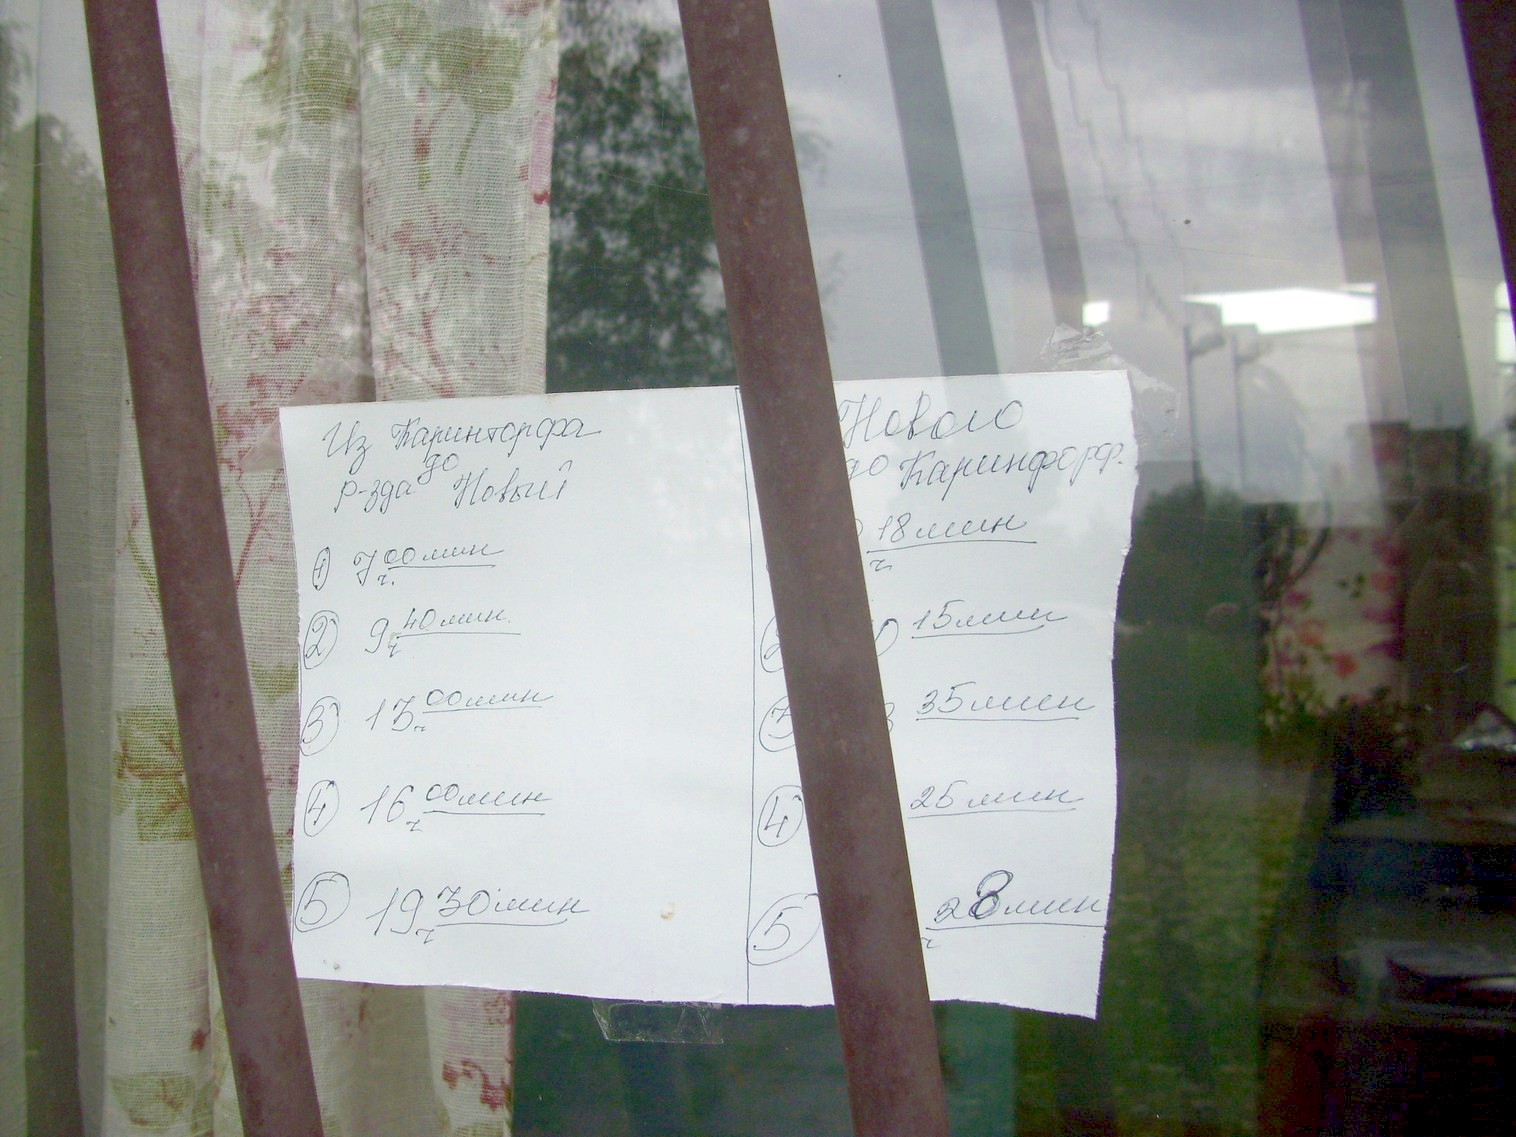 Из Каринторфа
до
р-зда Новый
① 7 ч. 00 мин
② 9 ч 40 мин.
③ 13 ч 00 мин
④ 16 ч 00 мин
⑤ 19 ч 30 мин
Нового
до Каринфорф.
18 мин
ч
② 0 15 мин
③ 3 35 мин
④ 25 мин
⑤ ч 28 мин